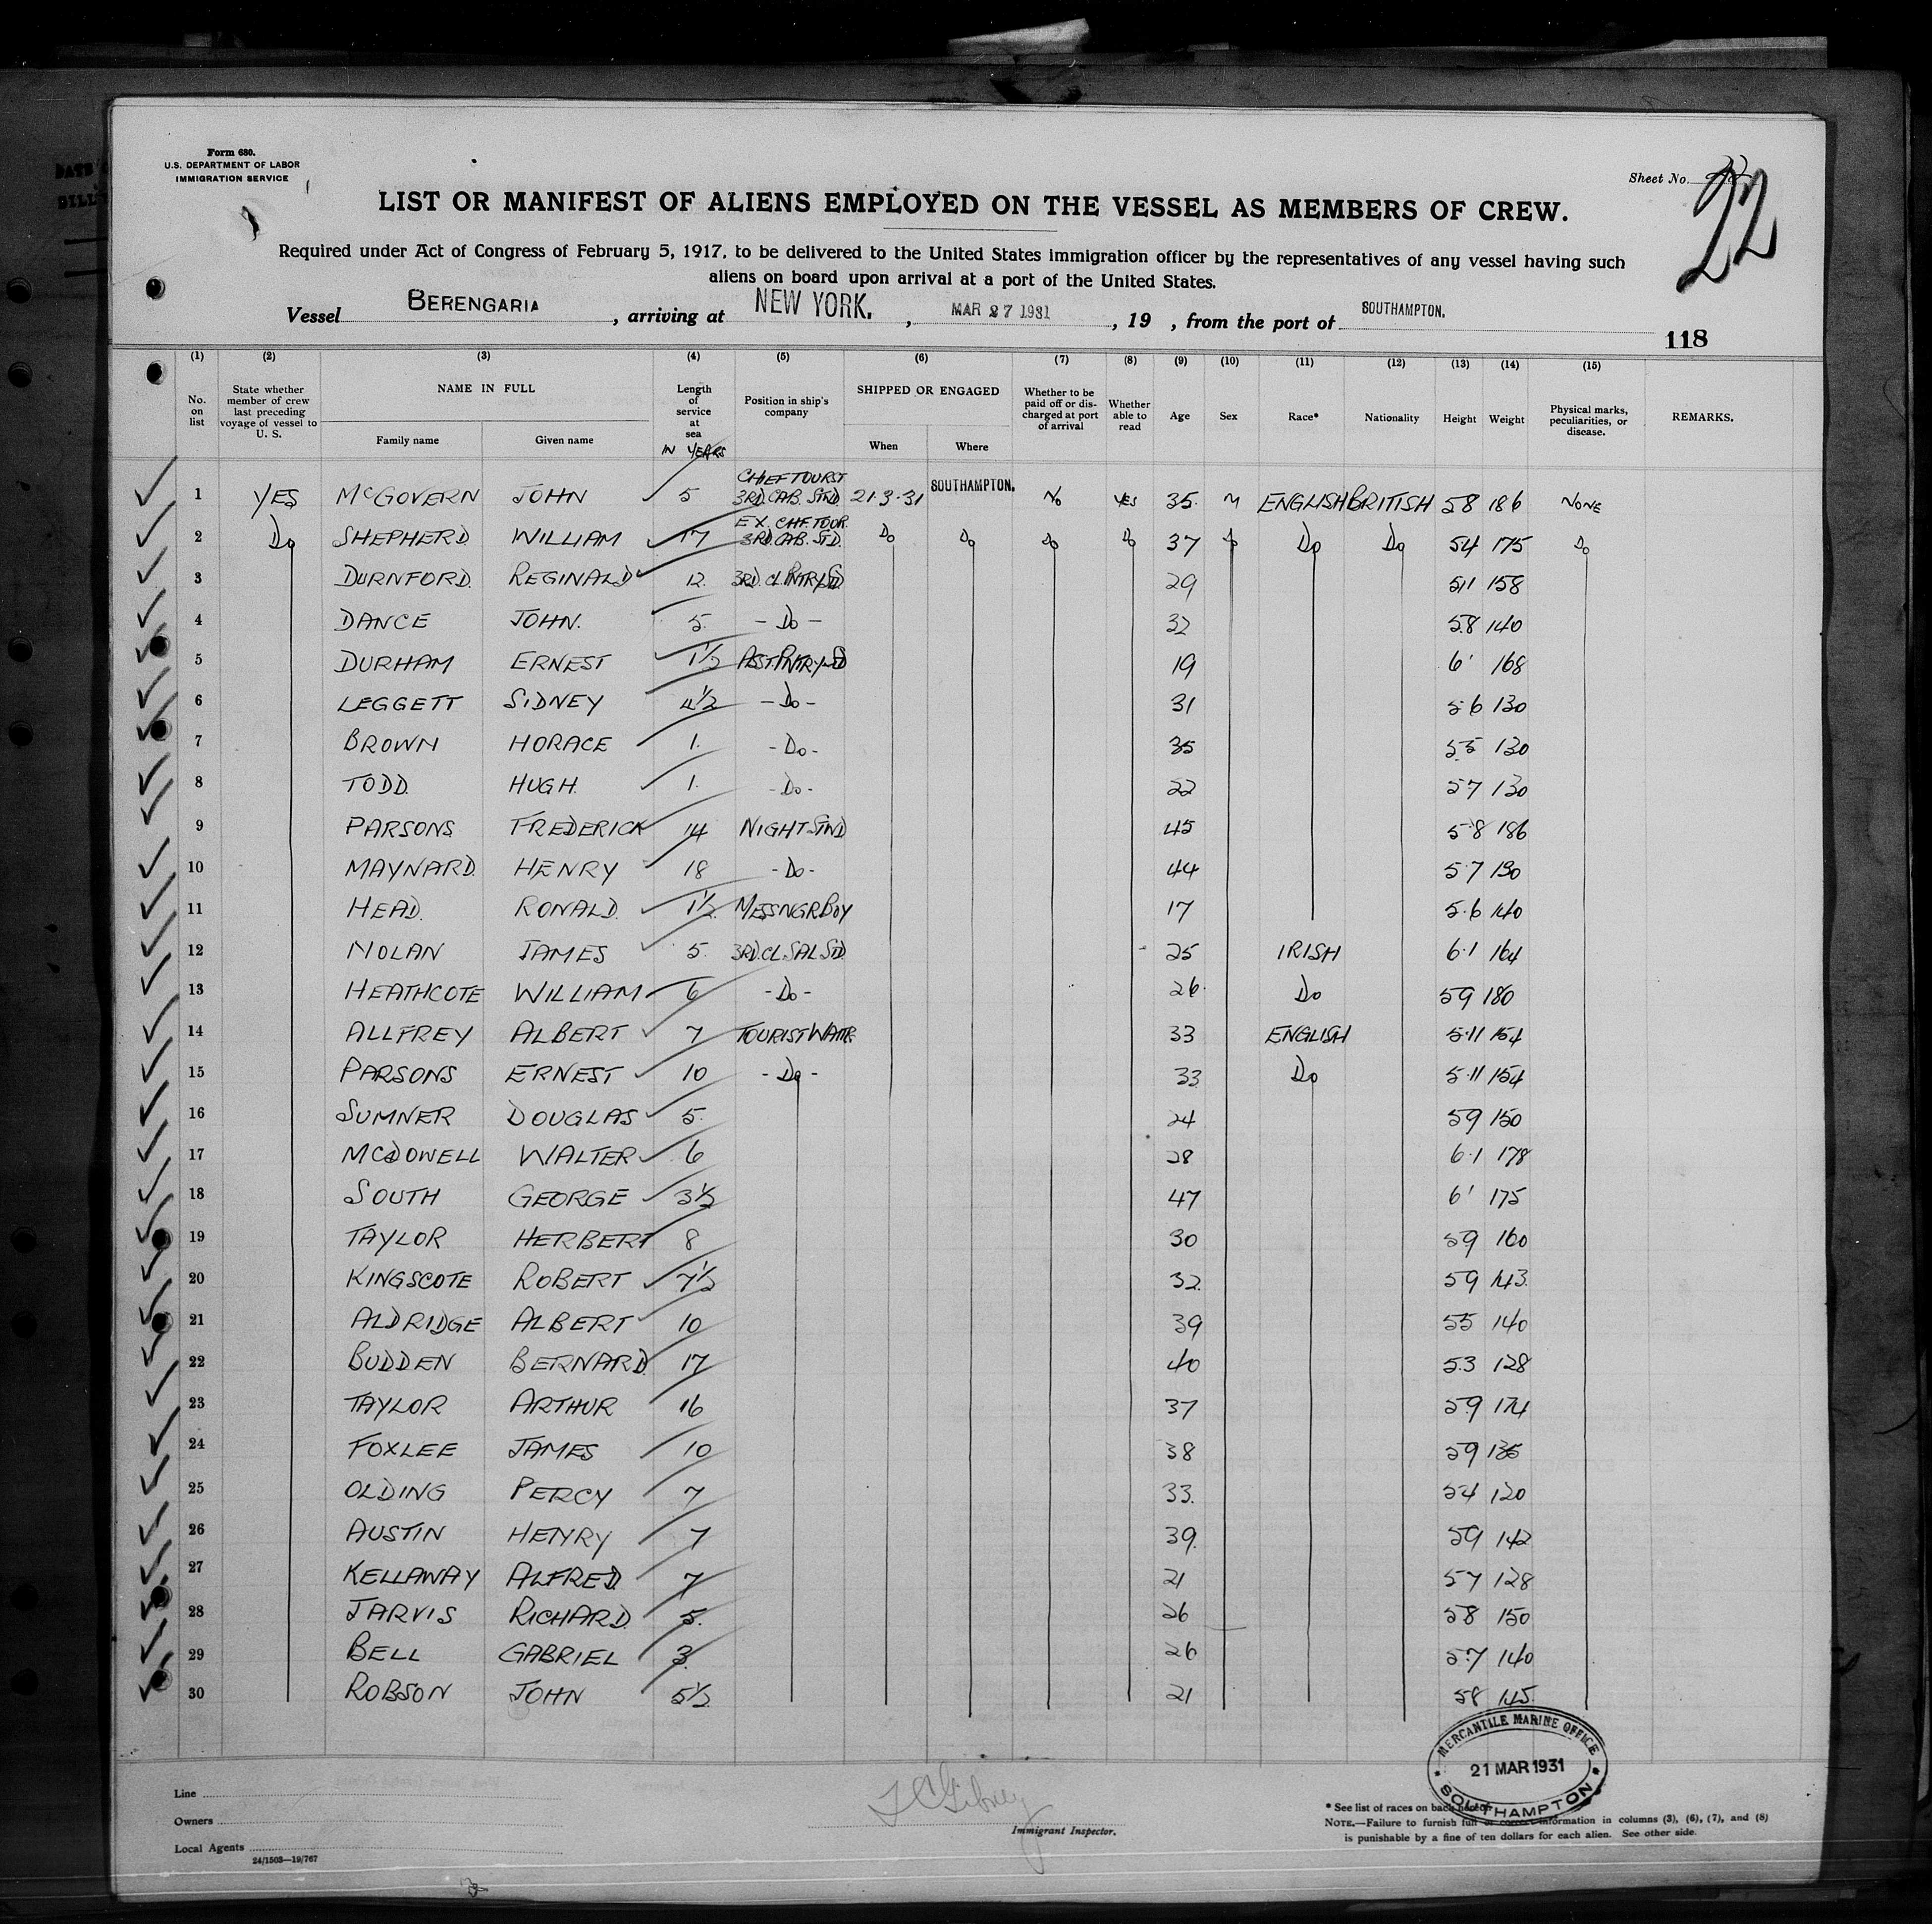 Form 680.
U.S. DEPARTMENT OF LABOR
IMMIGRATION SERVICE
Sheet No.
22
LIST OR MANIFEST OF ALIENS EMPLOYED ON THE VESSEL AS MEMBERS OF CREW.
Required under Act of Congress of February 5, 1917, to be delivered to the United States immigration officer by the representatives of any vessel having such
aliens on board upon arrival at a port of the United States.
Vessel BERENGARIA, arriving at NEW YORK. , MAR 27 1931 , 19 , from the port of SOUTHAMPTON.
118
(1) (2) (3) (4) (5) (6) (7) (8) (9) (10) (11) (12) (13) (14) (15)
No. on list State whether member of crew last preceding voyage of vessel to U. S. NAME IN FULL Length of service at sea IN YEARS Position in ship's company SHIPPED OR ENGAGED Whether to be paid off or discharged at port of arrival Whether able to read Age Sex Race* Nationality Height Weight Physical marks, peculiarities, or disease. REMARKS.
Family name Given name When Where
1 YES McGOVERN JOHN 5 CHIEF TOURST 3RD.CAB. STRD 21.3.31 SOUTHAMPTON. No YES 35. M ENGLISH BRITISH 58 186 NONE
2 Do SHEPHERD WILLIAM 17 EX. CHF. TOUR. 3RD.CAB. STD. Do Do Do Do 37 Do Do Do 54 175 Do
3 DURNFORD. REGINALD 12. 3RD. CL PNTRY SD 29 511 158
4 DANCE JOHN. 5. - Do - 32 5.8 140
5 DURHAM ERNEST 1½ ASST.PNTRY SD 19 6' 168
6 LEGGETT SIDNEY 4½ - Do - 31 5.6 130
7 BROWN HORACE 1. - Do - 35 55 130
8 TODD. HUGH. 1. - Do - 22 57 130
9 PARSONS FREDERICK 14 NIGHT STWD 45 5.8 186
10 MAYNARD. HENRY 18 - Do - 44 5.7 130
11 HEAD. RONALD. 1½ MESSNGR BOY 17 5.6 140
12 NOLAN JAMES 5. 3RD.CL.SAL SD. 25 IRISH 6.1 164
13 HEATHCOTE WILLIAM 6 - Do - 26. Do 59 180
14 ALLFREY ALBERT 7 TOURIST WAITR 33 ENGLISH 5.11 154
15 PARSONS ERNEST 10 - Do - 33 Do 5.11 154
16 SUMNER DOUGLAS 5. 24 59 150
17 McDOWELL WALTER 6 28 6.1 178
18 SOUTH GEORGE 3½ 47 6' 175
19 TAYLOR HERBERT 8 30 59 160
20 KINGSCOTE ROBERT 7½ 32. 59 143.
21 ALDRIDGE ALBERT 10 39 55 140
22 BUDDEN BERNARD. 17 40 5.3 128
23 TAYLOR ARTHUR 16 37 59 174
24 FOXLEE JAMES 10 38 59 135
25 OLDING PERCY 7 33. 54 120
26 AUSTIN HENRY 7 39. 59 142
27 KELLAWAY ALFRED. 7 21 57 128
28 JARVIS RICHARD. 5. 26 58 150
29 BELL GABRIEL 3. 26 5.7 140
30 ROBSON JOHN 5½ 21 58 145.
MERCANTILE MARINE OFFICE
21 MAR 1931
SOUTHAMPTON
Line
Owners
Local Agents
24/1503—19/767
Immigrant Inspector.
* See list of races on back hereof.
NOTE.—Failure to furnish full or correct information in columns (3), (6), (7), and (8)
is punishable by a fine of ten dollars for each alien. See other side.